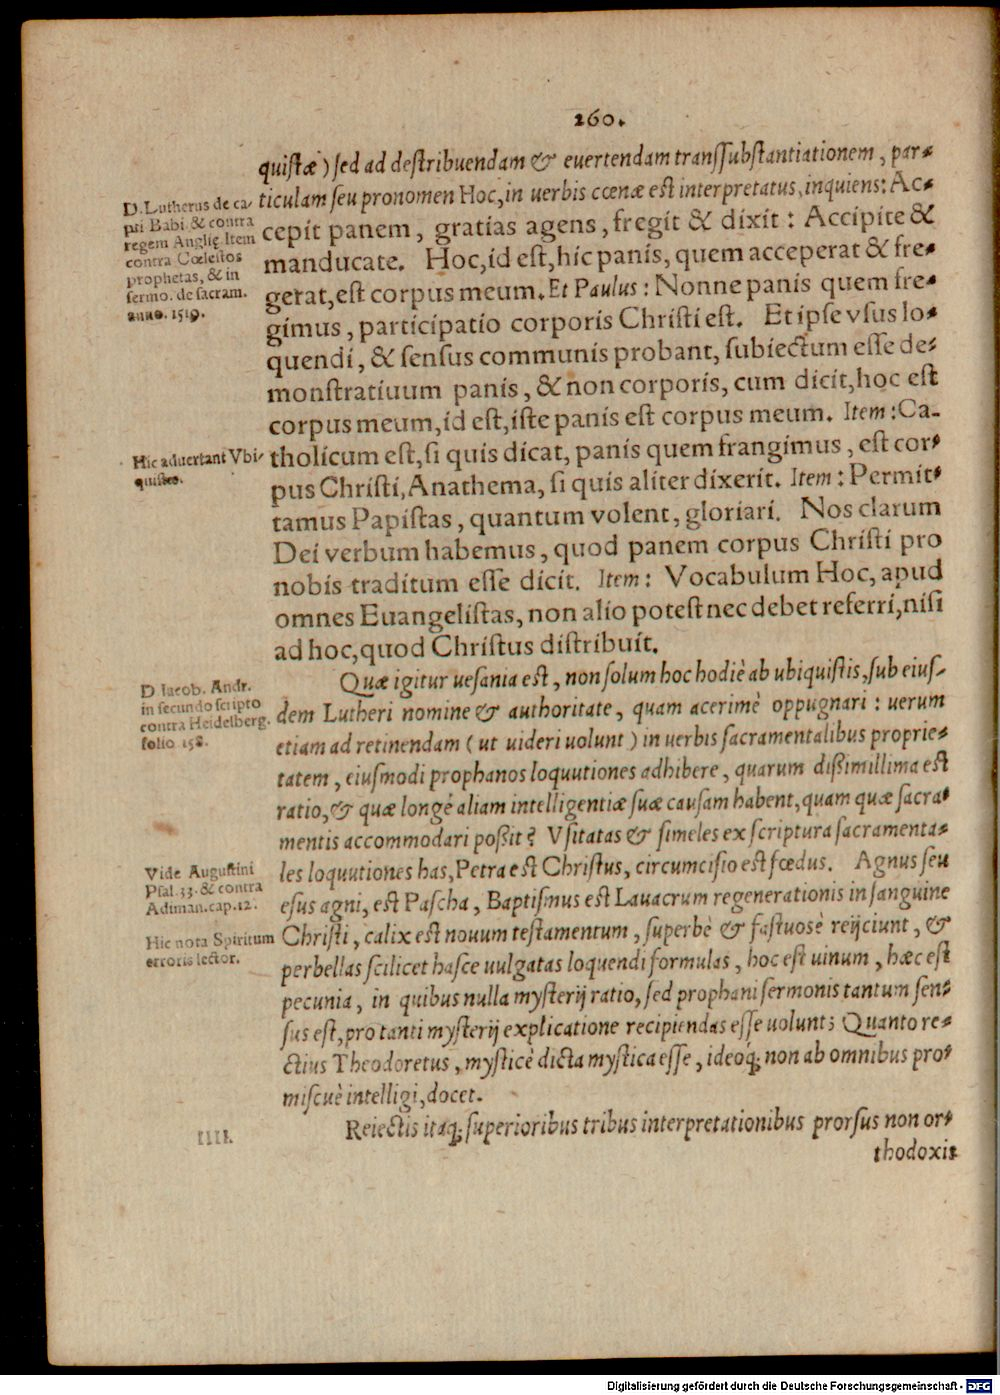 260.
quistæ) sed ad destribuendam & euertendam transsubstantiationem, par-
ticulam seu pronomen Hoc, in uerbis cœnæ est interpretatus, inquiens: Ac-
cepit panem, gratias agens, fregit & dixit: Accipite &
manducate. Hoc, id est, hic panis, quem acceperat & fre-
gerat, est corpus meum. Et Paulus: Nonne panis quem fre-
gimus, participatio corporis Christi est. Et ipse vsus lo-
quendi, & sensus communis probant, subiectum esse de-
monstratiuum panis, & non corporis, cum dicit, hoc est
corpus meum, id est, iste panis est corpus meum. Item: Ca-
tholicum est, si quis dicat, panis quem frangimus, est cor-
pus Christi, Anathema, si quis aliter dixerit. Item: Permit-
tamus Papistas, quantum volent, gloriari. Nos clarum
Dei verbum habemus, quod panem corpus Christi pro
nobis traditum esse dicit. Item: Vocabulum Hoc, apud
omnes Euangelistas, non alio potest nec debet referri, nisi
ad hoc, quod Christus distribuit.
D. Lutherus de ca-
pti Babi. & contra
regem Anglię Item
contra Cœlestos
prophetas, & in
sermo. de sacram.
anno. 1519.
Hic aduertant Vbi-
quistæ.
Quæ igitur uesania est, non solum hoc hodiè ab ubiquistis, sub eius-
dem Lutheri nomine & authoritate, quam acerimè oppugnari: uerum
etiam ad retinendam (ut uideri uolunt) in uerbis sacramentalibus proprie-
tatem, eiusmodi prophanos loquutiones adhibere, quarum dißimillima est
ratio, & quæ longè aliam intelligentiæ suæ causam habent, quam quæ sacra-
mentis accommodari poßit? Vsitatas & simeles ex scriptura sacramenta-
les loquutiones has, Petra est Christus, circumcisio est fœdus. Agnus seu
esus agni, est Pascha, Baptismus est Lauacrum regenerationis in sanguine
Christi, calix est nouum testamentum, superbè & fastuosè reijciunt, &
perbellas scilicet hasce uulgatas loquendi formulas, hoc est uinum, hæc est
pecunia, in quibus nulla mysterij ratio, sed prophani sermonis tantum sen-
sus est, pro tanti mysterij explicatione recipiendas esse uolunt; Quanto re-
ctius Theodoretus, mysticè dicta mystica esse, ideoq́; non ab omnibus pro-
miscuè intelligi, docet.
D Iacob. Andr.
in secundo scripto
contra Heidelberg.
folio 158.
Vide Augustini
Psal. 33. & contra
Adiman. cap. 12.
Hic nota Spiritum
erroris lector.
IIII.
Reiectis itaq́; superioribus tribus interpretationibus prorsus non or-
thodoxis
Digitalisierung gefördert durch die Deutsche Forschungsgemeinschaft - DFG